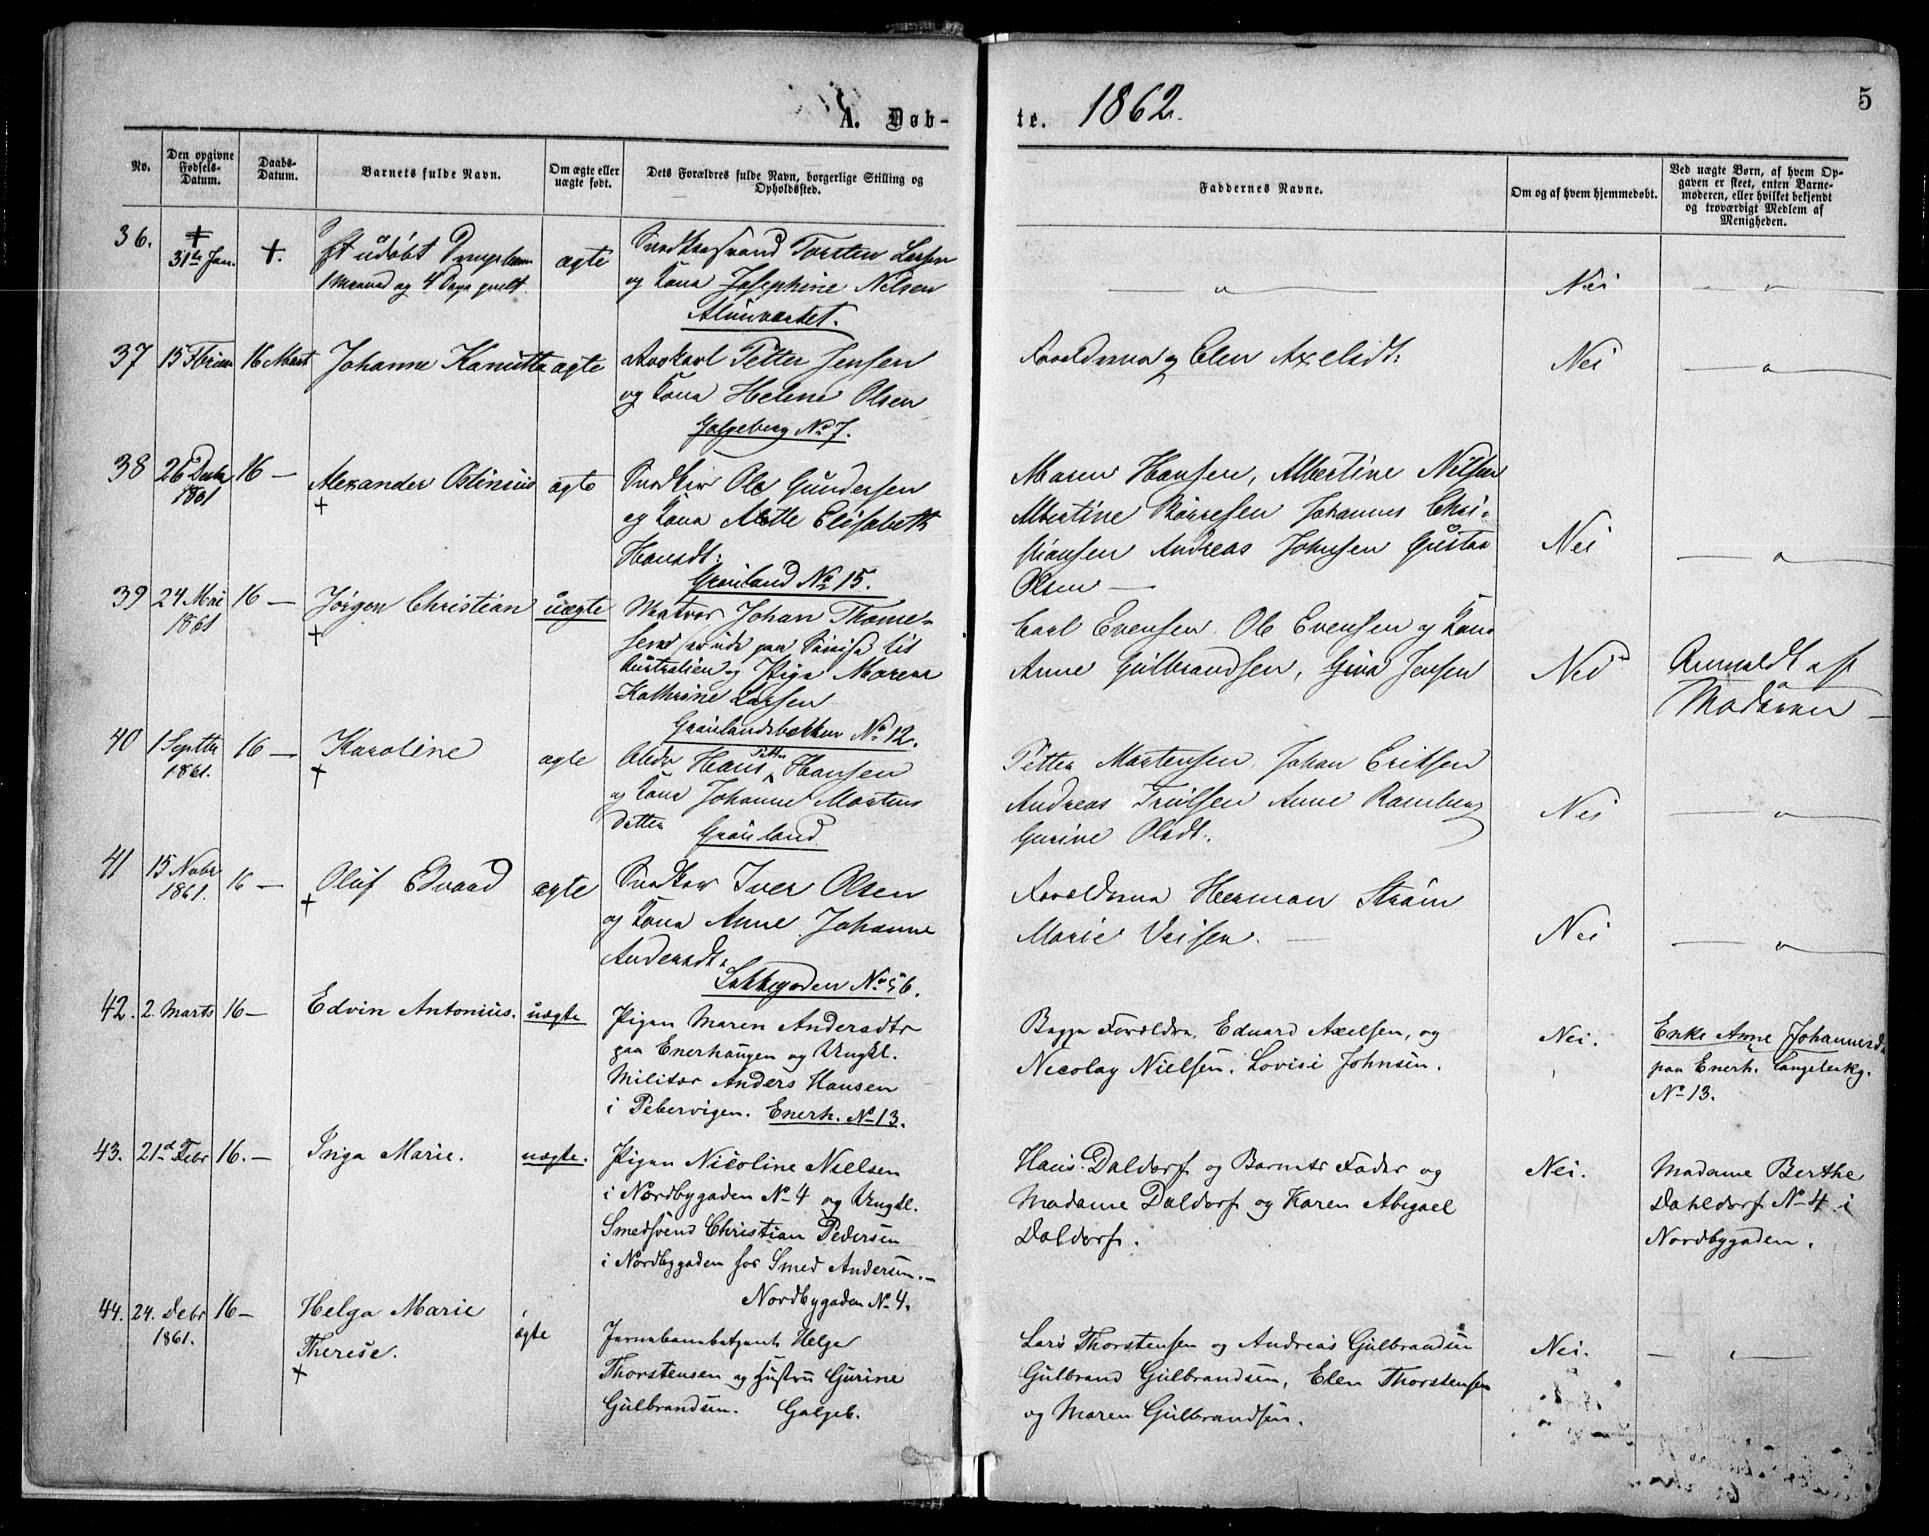 A. Døb-
te. 1862.
5
No.
Den opgivne Fødsels-Datum.
Daabs-Datum.
Barnets fulde Navn.
Om ægte eller uægte født.
Dets Forældres fulde Navn, borgerlige Stilling og Opholdssted.
Faddernes Navne.
Om og af hvem hjemmedøbt.
Ved uægte Børn, af hvem Opgaven er skeet, enten Barnemoderen, eller hvilket bekjendt og troværdigt Medlem af Menigheden.
36. 31te Jan. + Et udøbt
1 Maaned og 4 Dage
ægte
Torsten Larsen
og Kona Josephine Nilsen
Alunværket.
Nei
37 15 16 Mart Johanne ægte
Petter Jensen
og Kona Helene Olsen
Galgeberg No 7.
og Elen Axelsdt:
Nei
38 26 Decbr 1861 16 — Alexander Ostinius
+
ægte
Snedker Ole Gundersen
og Kona Elisabeth
Hansdt:
Grønland No 15.
Maren Hansen, Albertine Nilsen
Albertine Johannes Chri-
stiansen Andreas Johnsen Gustav
Olsen —
Nei
39 24 Mai 1861 16 — Jørgen Christian
+
uægte
Matros Johan Thome-
sen til
Australien og Pige Maren
Kathrine Larsen
Grønlandsbakken No 12.
Carl Evensen Ole Evensen og Kona
Anne Gulbrandsen, Gina Jensen
Nei
Anmeldt af
Moderen
40 1 Septbr 1861. 16 — Karoline
+
ægte
Hans Petter Hansen
og Kona Johanne Mortens
datter
Grønland
Petter Mortensen Johan Eriksen
Andreas Trulsen Anne Ramberg
Gurine Olsdt.
Nei
41 15 Novbr 1861. 16 — Oluf Edvard
+
ægte
Snedker Iver Olsen
og Kona Anne Johanne
Andersdt.
Lakkegaden No 56.
Forældrene Herman Strøm
Marie
Nei
42. 2. Marts 16 — Edvin Antonius. uægte
Pigen Maren Andersdtr
paa Enerhaugen og Ungkl.
Militær Anders Hansen
i Pebervigen. Enerh. No 13.
Begge Forældre, Eduard Axelsen, og
Nicolay Nielsen. Lovise Johnsen.
Nei.
Enke Anne Johannesd.
paa Enerh.
No 13.
43. 21d Febr 16. — Inga Marie. uægte.
Pigen Nicoline Nielsen
i Nordbygaden No 4 og Ungkl.
Smedsvend Christian Pedersen
i Nordbygaden hos Smed Andersen. —
Nordbygaden No 4.
Hans Daldorf og Barnets Fader og
Madame Daldorf og Karen Abigael
Daldorf.
Nei.
Madame Berthe
Dahldorf No 4 i
Nordbygaden.
44. 24. Debr 1861. 16 — Helga Marie
Therese.
+
ægte
Jernbanebetjent Helge
Thorstensen og Hustru Gurine
Gulbrandsen. Galgeb.
Lars Thorstensen og Andreas Gulbrandsen
Gulbrand Gulbrandsen, Elen Thorstensen
og Maren Gulbrandsen.
Nei.